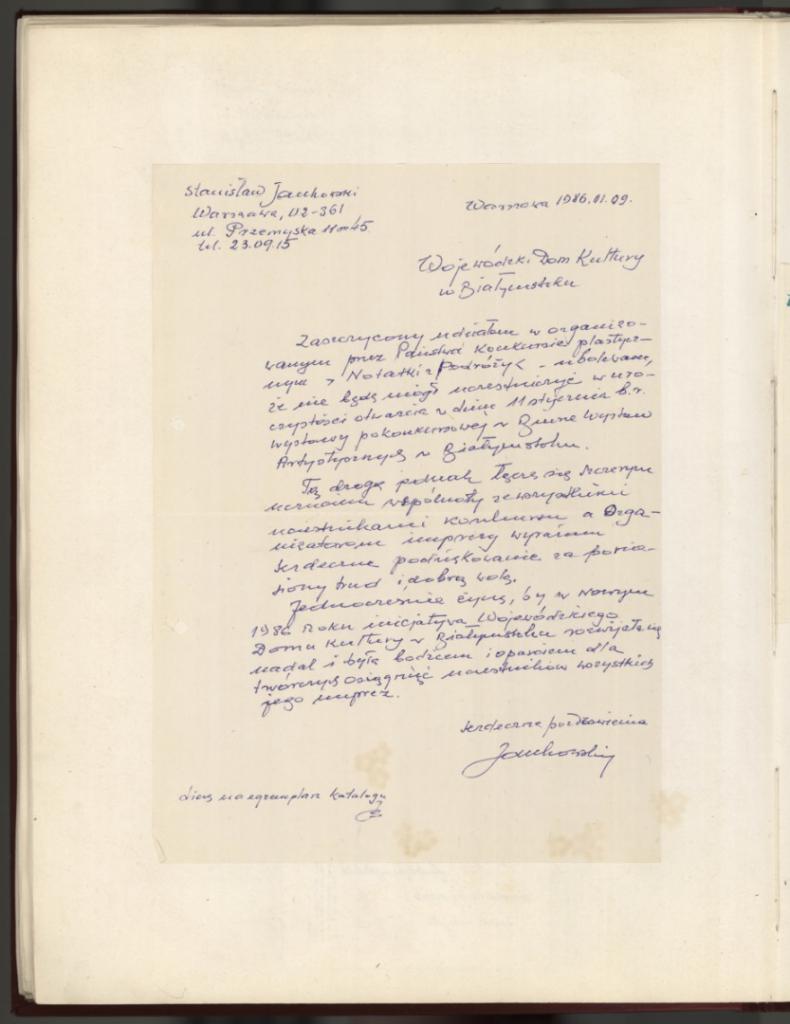 Stanisław Jankowski
Warszawa, 02-361
ul. Przemyska 11 m 45
tel. 23.09.15
Warszawa 1986.01.09.
Wojewódzki Dom Kultury
w Białymstoku
Zaszczycony udziałem w organizo-
wanym przez Państwa konkursie plastycz-
nym "Notatki z Podróży" - ubolewam,
że nie będę mógł uczestniczyć w uro-
czystości otwarcia w dniu 11 stycznia b.r.
wystawy pokonkursowej w Biurze Wystaw
Artystycznych w Białymstoku.
Tą drogą jednak łączę się szczerym
uczuciem wspólnoty ze wszystkimi
uczestnikami konkursu a Orga-
nizatorom imprezy wyrażam
serdeczne podziękowanie za ponie-
siony trud i dobrą wolę.
Jednocześnie życzę, by w Nowym
1986 Roku inicjatywa Wojewódzkiego
Domu Kultury w Białymstoku rozwijała się
nadal i była bodźcem i oparciem dla
twórczych osiągnięć uczestników wszystkich
jego imprez.
serdeczne pozdrowienia
Jankowski
Liczę na egzemplarz katalogu